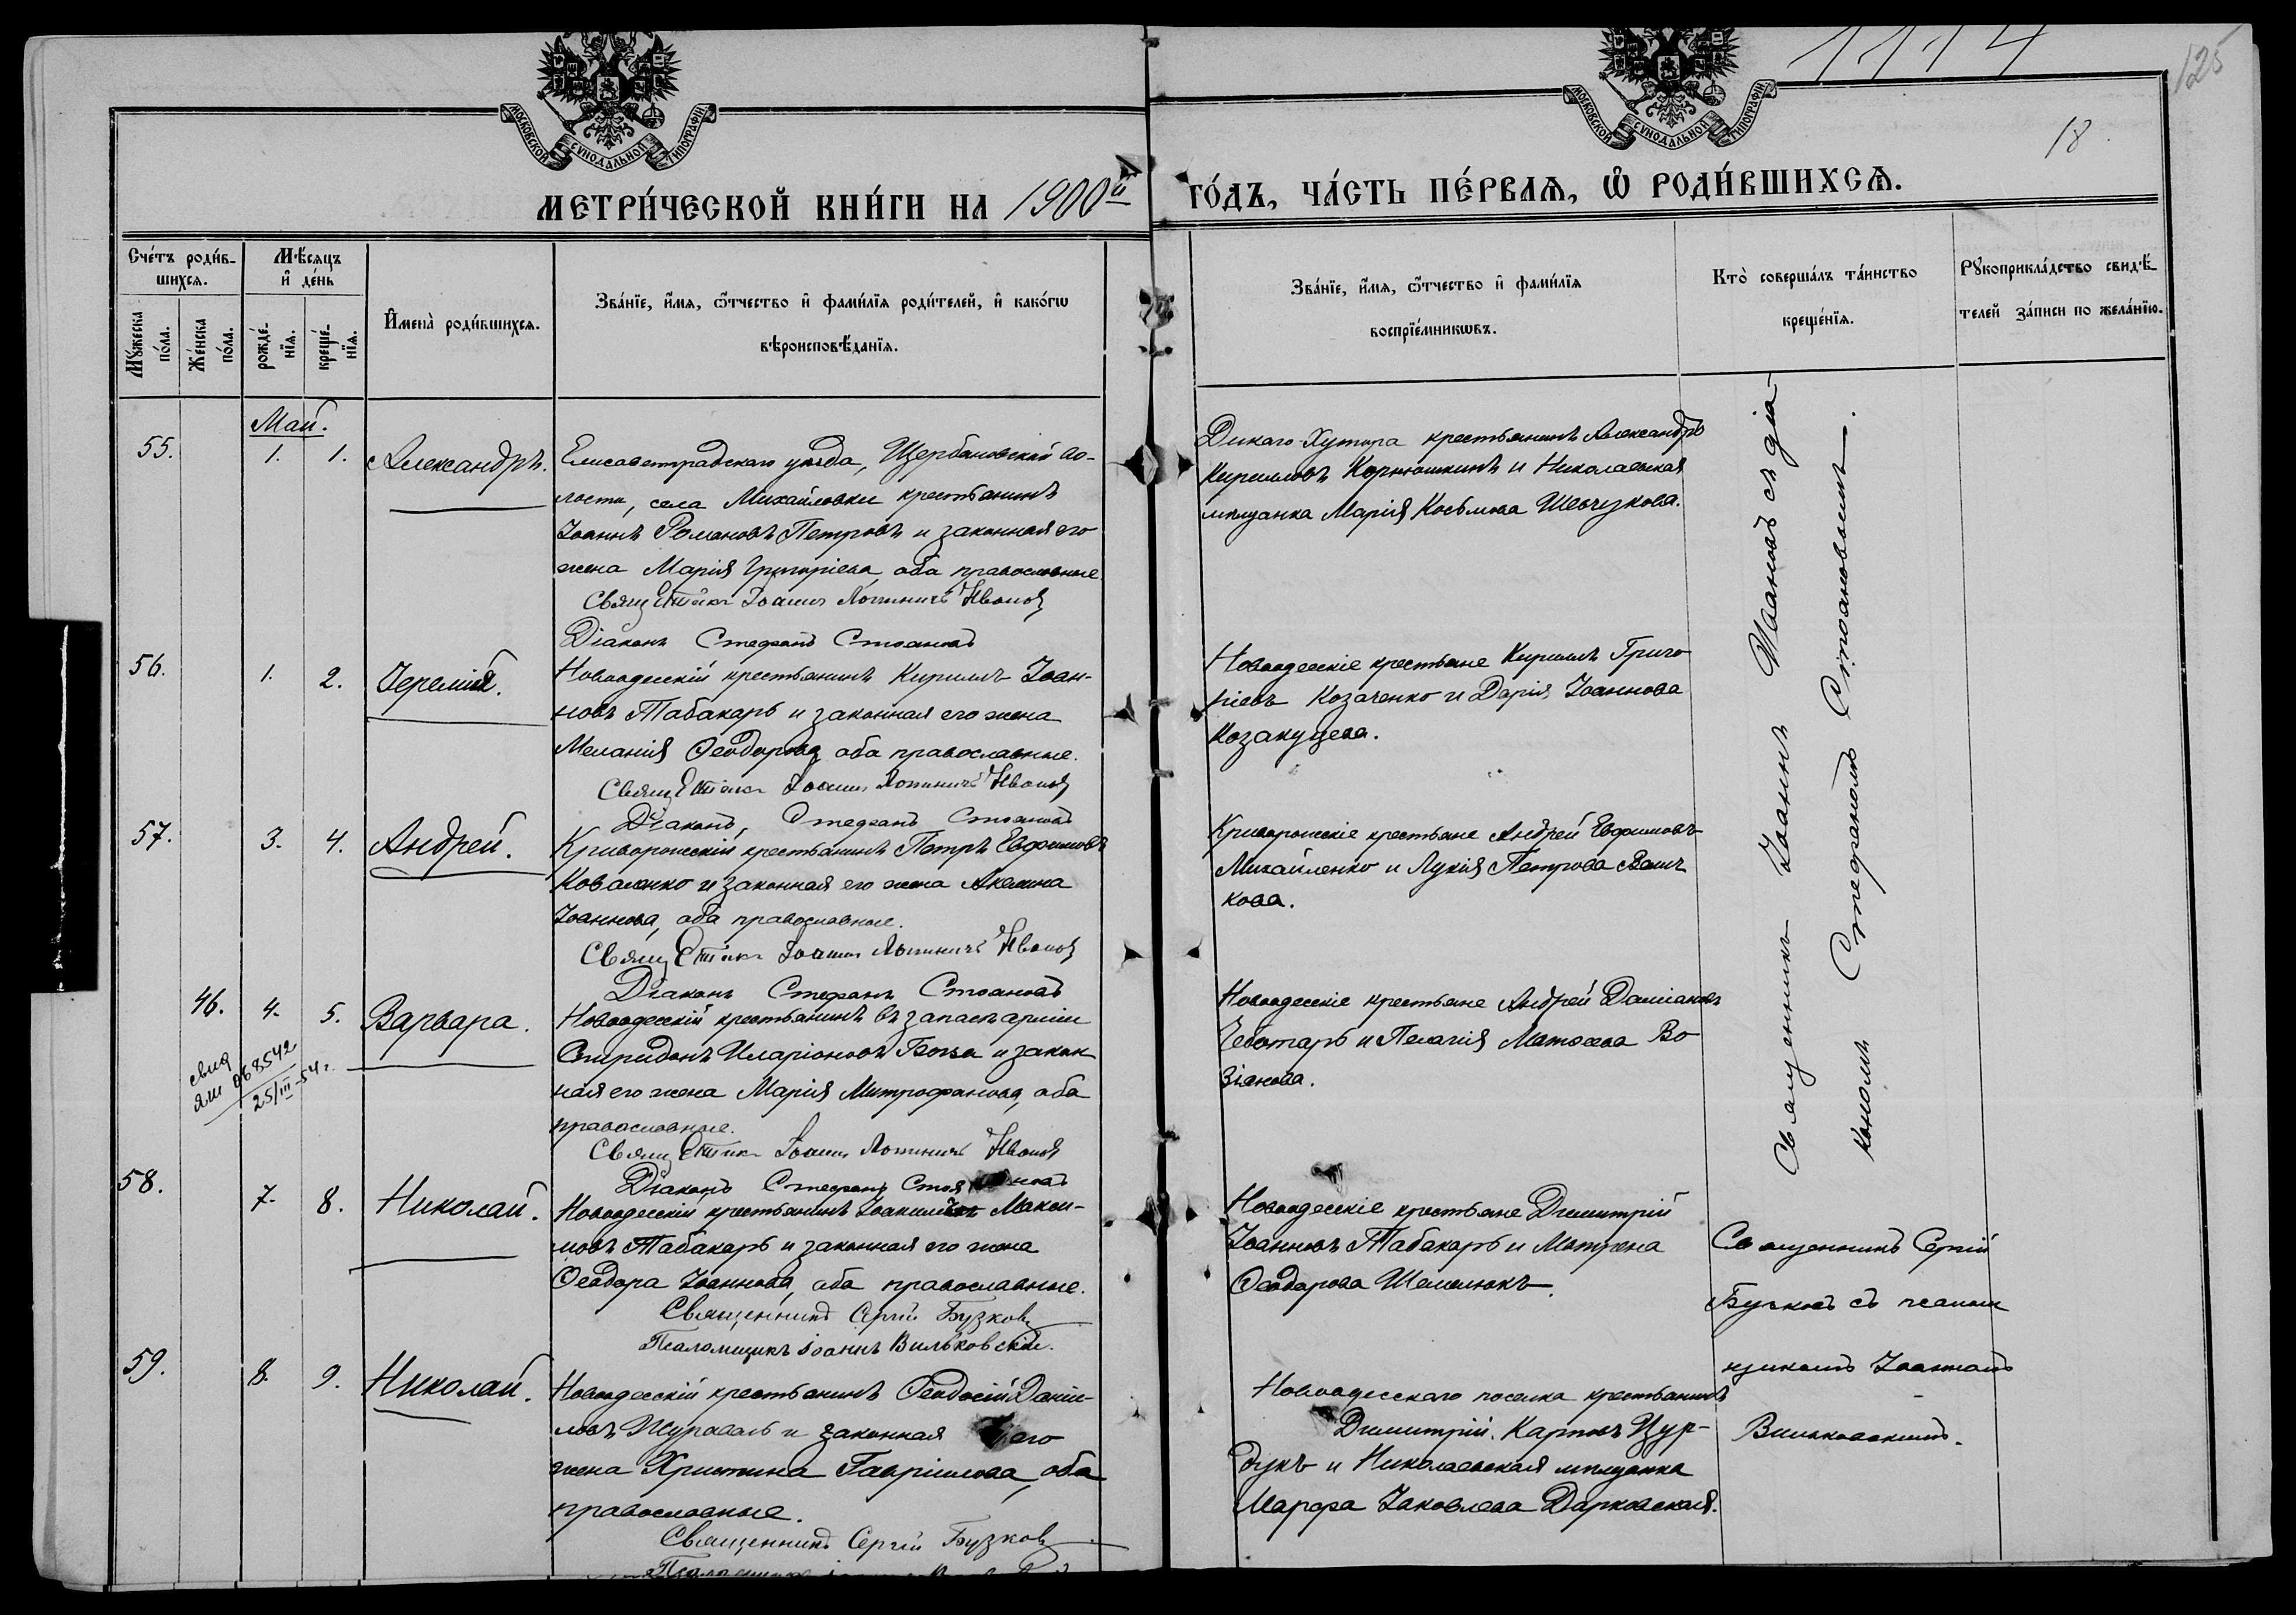 1114
125
18
МОСКОВСКОЙ СѴНОДАЛЬНОЙ ТИПОГРАФІИ
МОСКОВСКОЙ СѴНОДАЛЬНОЙ ТИПОГРАФІИ
МЕТРИ́ЧЕСКОЙ КНИ́ГИ НА 1900й
ГО́ДЪ, ЧА́СТЬ ПЕ́РВАѦ, Ѿ РОДИ́ВШИХСѦ.
Сче́тъ роди́в-
шихсѧ.
Мꙋ́жеска
по́ла.
Же́нска
по́ла.
Мѣ́сѧцъ
и҆ де́нь
рожде́-
нїѧ.
креще́-
нїѧ.
И҆мена̀ роди́вшихсѧ.
Зва́нїе, и҆́мѧ, ѻ҆́тчество и҆ фами́лїѧ роди́телей, и҆ како́гѡ
вѣроисповѣ́данїѧ.
Зва́нїе, и҆́мѧ, ѻ҆́тчество и҆ фами́лїѧ
воспрїе́мникѡвъ.
Кто̀ соверша́лъ та́инство
креще́нїѧ.
Рꙋкоприкла́дство свидѣ́-
телей за́писи по жела́нїю.
Май.
55.
1.
1.
Александръ.
Елисаветградскаго уѣзда, Щербановской во-
лости, села Михайловки крестьянинъ
Іоаннъ Романовъ Петровъ и законная его
жена Марія Григоріева, оба православные.
Священникъ Іоаннъ Ивановъ
Діаконъ Стефанъ Стоановъ
Дикаго-Хутора крестьянинъ Александръ
Кирилловъ Корнюшкинъ и Николаевская
мѣщанка Марія Косьмова Шевчукова.
56.
1.
2.
Іеремія.
Новоодесскій крестьянинъ Кириллъ Іоан-
новъ Табакарь и законная его жена
Меланія Ѳеодорова, оба православные.
Священникъ Іоаннъ Ивановъ
Діаконъ, Стефанъ Стоановъ
Новоодесскіе крестьяне Кириллъ Григо
ріевъ Козаченко и Дарія Іоаннова
Козакуцева.
57.
3.
4.
Андрей.
Криворожскій крестьянинъ Петръ Евфимовъ
Коваленко и законная его жена Акилина
Іоаннова, оба православные.
Священникъ Іоаннъ Ивановъ
Діаконъ Стефанъ Стоановъ
Криворожскіе крестьяне Андрей Евфимовъ
Михайленко и Лукія Петрова
кова.
46.
4.
5.
Варвара.
068542
25/III-54г.
Новоодесскій крестьянинъ въ запасѣ арміи
Спиридонъ Иларіоновъ и закон
ная его жена Марія Митрофанова, оба
православные.
Священникъ Іоаннъ Ивановъ
Діаконъ Стефанъ Стоановъ
Новоодесскіе крестьяне Андрей Даміановъ
Чеботарь и Пелагія Матѳеева Во
зіянова.
Священникъ Іоаннъ Ивановъ съ діа-
кономъ Стефаномъ Стоановымъ.
58.
7.
8.
Николай.
Новоодесскій крестьянинъ Іоакимъ Макси-
мовъ Табакарь и законная его жена
Ѳеодора Іоаннова, оба православные.
Священникъ Сергій Бузковъ
Псаломщикъ Іоаннъ Вильковскій.
Новоодесскіе крестьяне Димитрій
Іоанновъ Табакарь и Матрена
Ѳеодорова Шемелюкъ.
Священникъ Сергій
Бузковъ съ псалом
щикомъ Іоанномъ
Вильковскимъ.
59.
8.
9.
Николай.
Новоодесскій крестьянинъ Ѳеодосій Даніи-
ловъ Журавль и законная его
жена Христина Гавріилова, оба
православные.
Священникъ Сергій Бузковъ
Новоодесскаго поселка крестьянинъ
Димитрій Карповъ Цур-
дукъ и Николаевская мѣщанка
Марфа Іаковлева Дарковская.